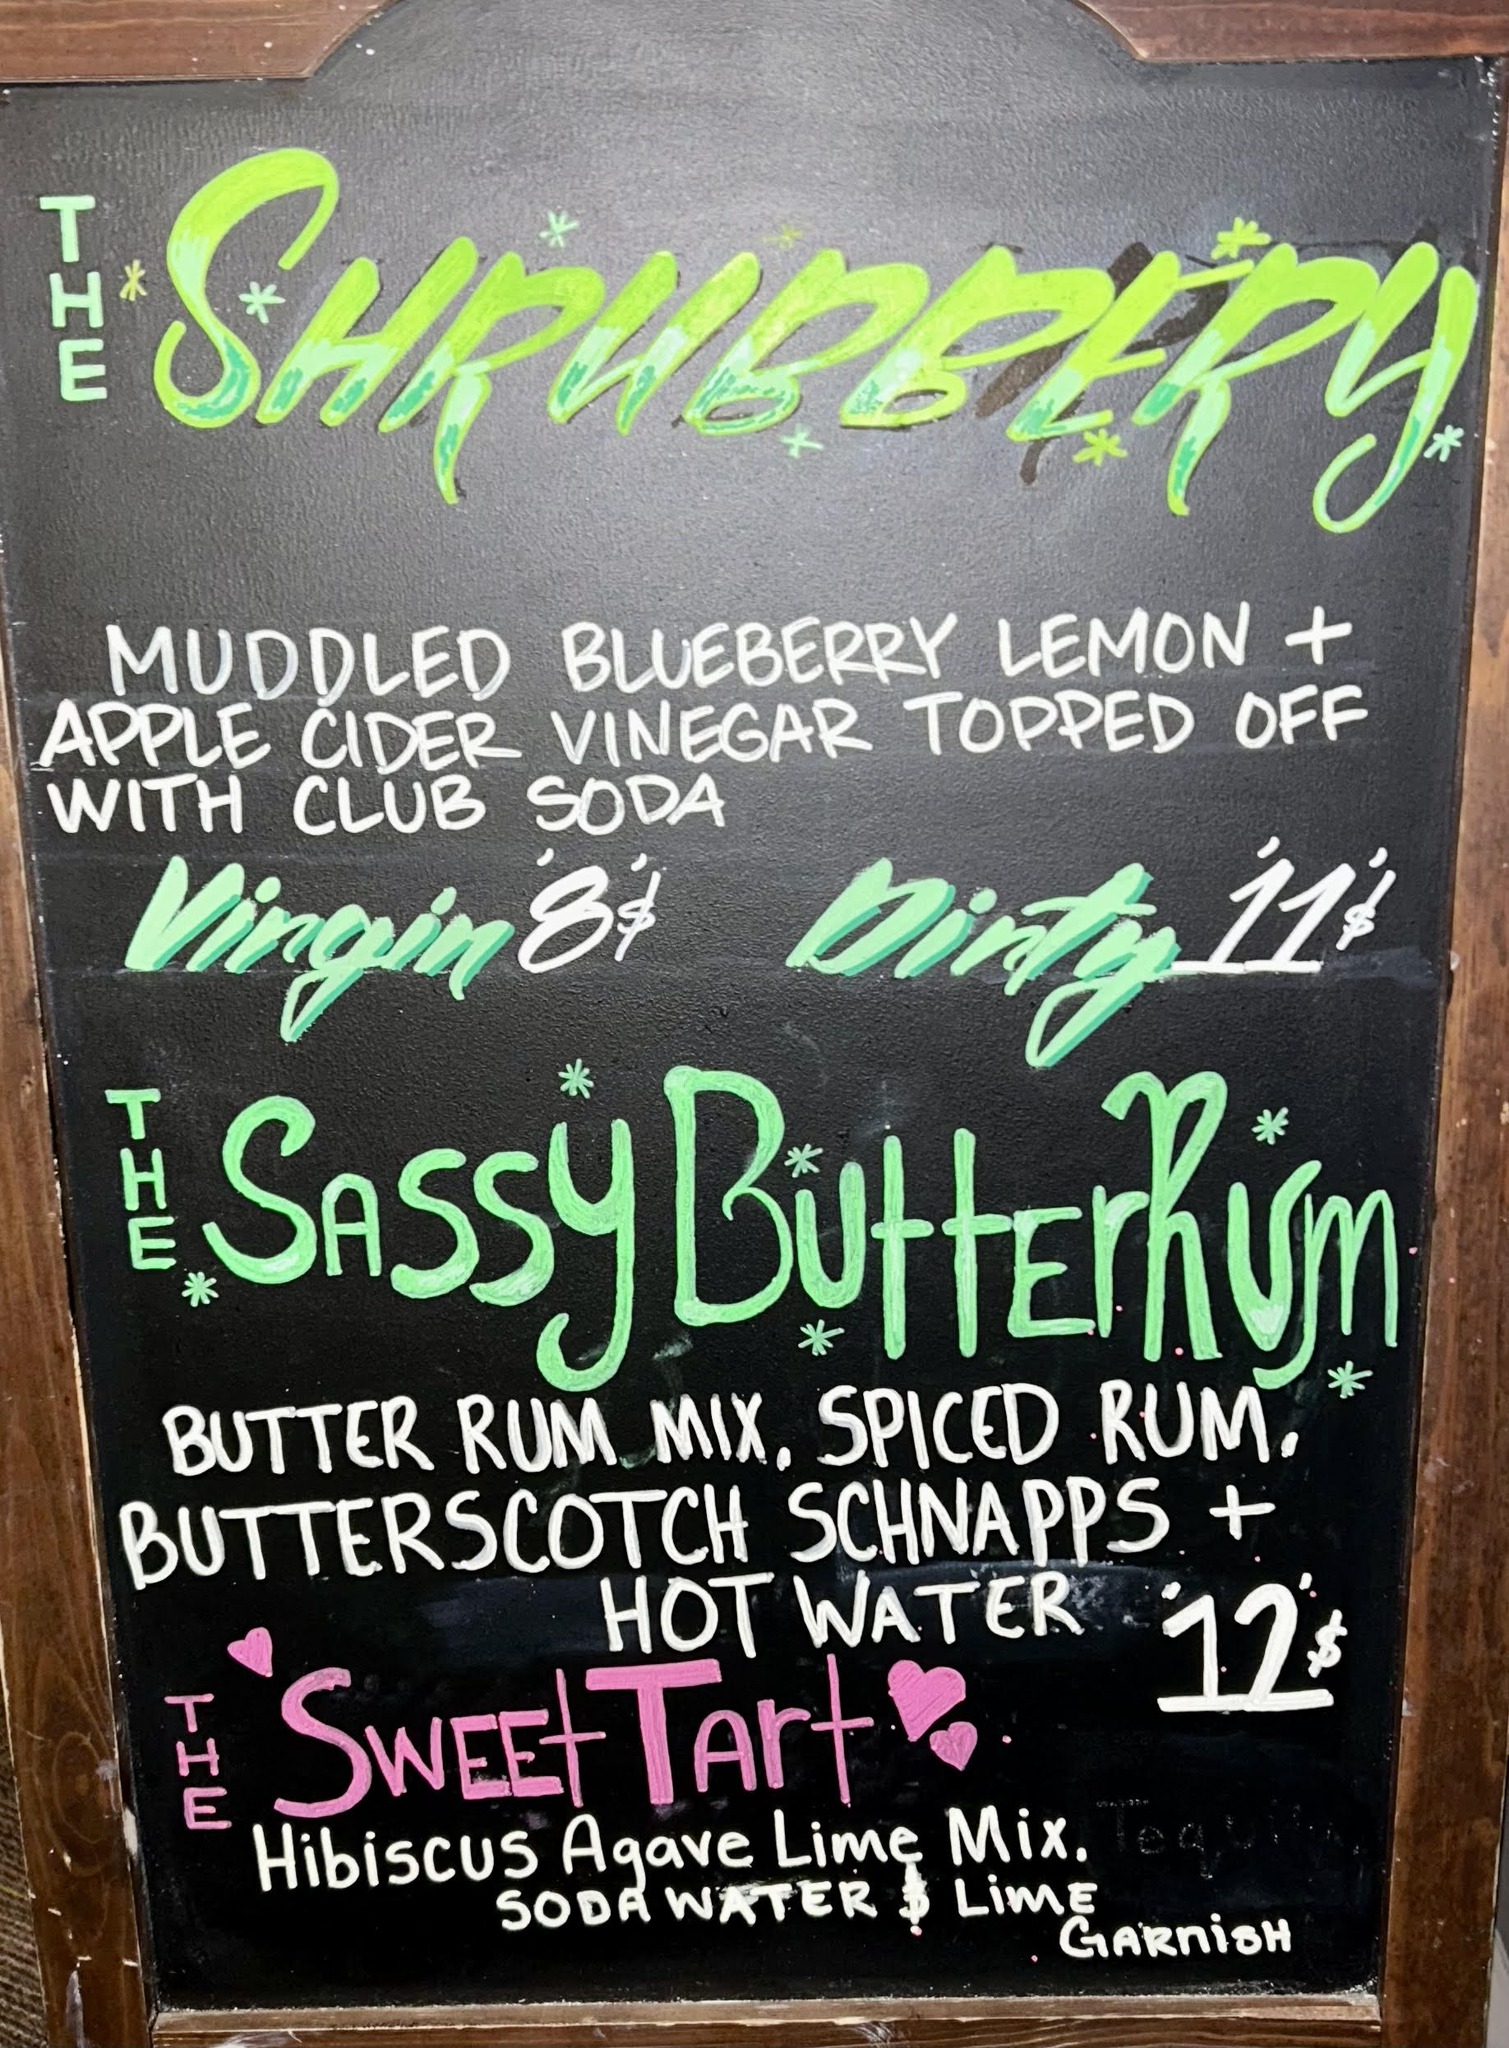 THE SHRUBBERY
MUDDLED BLUEBERRY LEMON +
APPLE CIDER VINEGAR TOPPED OFF
WITH CLUB SODA
Virgin 8$ Dirty 11$
THE SASSY BUttERRUm
BUTTER RUM MIX, SPICED RUM,
BUTTERSCOTCH SCHNAPPS +
HOT WATER 12$
THE SWEEt TArt
HibiscUS Agave Lime Mix.
SODA WATER & LiME
GARNiSH